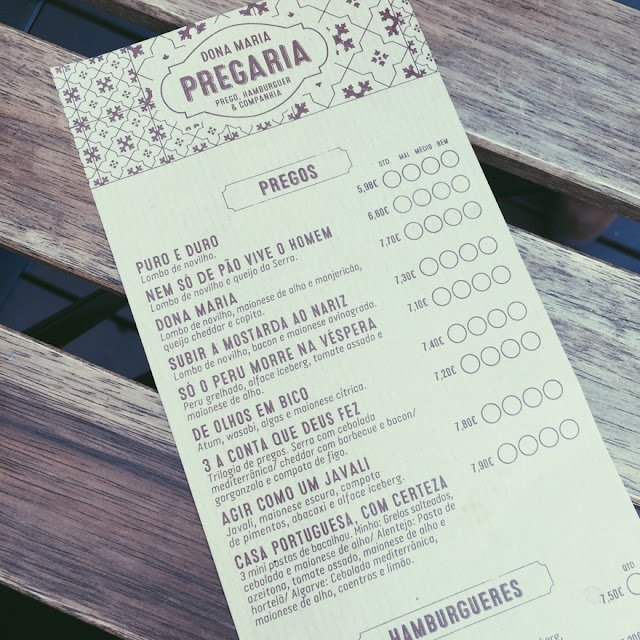 DONA MARIA
PREGARIA
PREGO, HAMBURGUER
& COMPANHIA
PREGOS
QTD MAL MÉDIO BEM
PURO E DURO 5,98€
Lombo de novilho.
NEM SÓ DE PÃO VIVE O HOMEM 6,80€
Lombo de novilho e queijo da Serra.
DONA MARIA 7,70€
Lombo de novilho, maionese de alho e manjericão,
queijo cheddar e copita.
SUBIR A MOSTARDA AO NARIZ 7,30€
Lombo de novilho, bacon e maionese avinagrada.
SÓ O PERU MORRE NA VÉSPERA 7,10€
Peru grelhado, alface iceberg, tomate assado e
maionese de alho.
DE OLHOS EM BICO 7,40€
Atum, wasabi, algas e maionese cítrica.
3 A CONTA QUE DEUS FEZ 7,20€
Trilogia de pregos. Serra com cebolada
mediterrânica/ cheddar com barbecue e bacon/
gorgonzola e compota de figo.
AGIR COMO UM JAVALI 7,80€
Javali, maionese escura, compota
de pimentos, abacaxi e alface iceberg.
CASA PORTUGUESA, COM CERTEZA 7,90€
3 mini pastas de bacalhau. Minho: Grelos salteados,
cebolada e maionese de alho/ Alentejo: Pasta de
azeitona, tomate assado, maionese de alho e
hortelã/ Algarve: Cebolada mediterrânica,
maionese de alho, coentros e limão.
HAMBURGUERES
7,50€